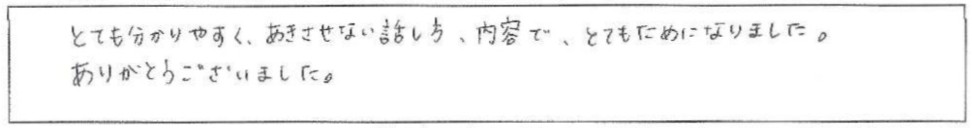 とても分かりやすく、あきさせない話し方、内容で、とてもためになりました。
ありがとうございました。